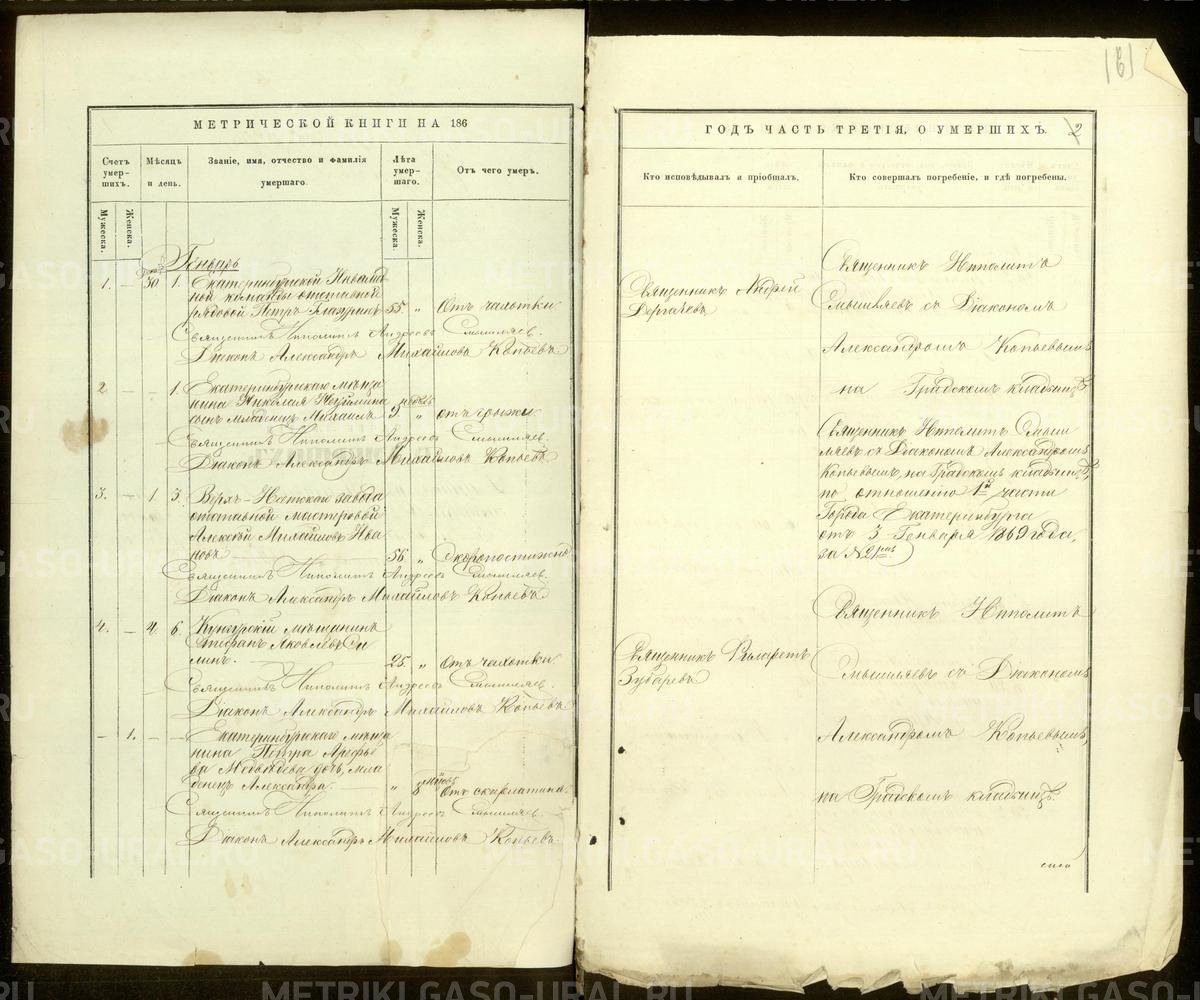 МЕТРИЧЕСКОЙ КНИГИ НА 186
Счетъ умер-шихъ.
Мѣсяцъ и день.
Званіе, имя, отчество и фамилія умершаго
Лѣта умер-шаго.
Отъ чего умеръ.
Мужеска.
Женска.
Мужеска.
Женска.
Генварь
1. — 30 1. Екатеринбургской Инвалид
ной команды отставной
рядовой Петръ 55 „ Отъ чахотки
Священникъ Ипполитъ Андреевъ Смышляевъ.
Діаконъ Александръ Михайловъ Копьевъ
2 — 1. Екатеринбургскаго мѣща
нина Николая недѣль
сынъ младенецъ Михаилъ 3 „ отъ грыжи
Священникъ Ипполитъ Андреевъ Смышляевъ.
Діаконъ Александръ Михайловъ Копьевъ
3. — 1. 3. Верх-Исетскаго завода
отставной мастеровой
Алексѣй Михайловъ Ива
новъ 56 „ Скоропостижно
Священникъ Ипполитъ Андреевъ Смышляевъ.
Діаконъ Александръ Михайловъ Копьевъ
4. — 4. 6. Кунгурскій мѣщанинъ
Стефанъ Яковлевъ Си
линъ. 25 „ Отъ чахотки
Священникъ Ипполитъ Андреевъ Смышляевъ.
Діаконъ Александръ Михайловъ Копьевъ
— 1. — — Екатеринбургскаго мѣща
нина Петра Арефье
ва Медвѣдева дочь, мла
денецъ Александра. „ 8 Отъ скарлатины.
Священникъ Ипполитъ Андреевъ Смышляевъ.
Діаконъ Александръ Михайловъ Копьевъ.
ГОДЪ ЧАСТЬ ТРЕТІЯ, О УМЕРШИХЪ. 2
Кто исповѣдывалъ и пріобщалъ.
Кто совершалъ погребеніе, и гдѣ погребены.
Священникъ Андрей
Дергачевъ
Священникъ Ипполитъ
Смышляевъ съ Діакономъ
Александромъ Копьевымъ
на Градскомъ кладбищѣ
Священникъ Ипполитъ Смыш
ляевъ съ Діакономъ Александромъ
Копьевымъ, на Градскомъ кладбищѣ,
по отношенію 1й части
Города Екатеринбурга
отъ 3 Генваря 1869 года,
за №
Священникъ
Зубаревъ
Священникъ Ипполитъ
Смышляевъ съ Діакономъ
Александромъ Копьевымъ,
на Градскомъ кладбищѣ.
METRIKI.GASO-URAL.RU